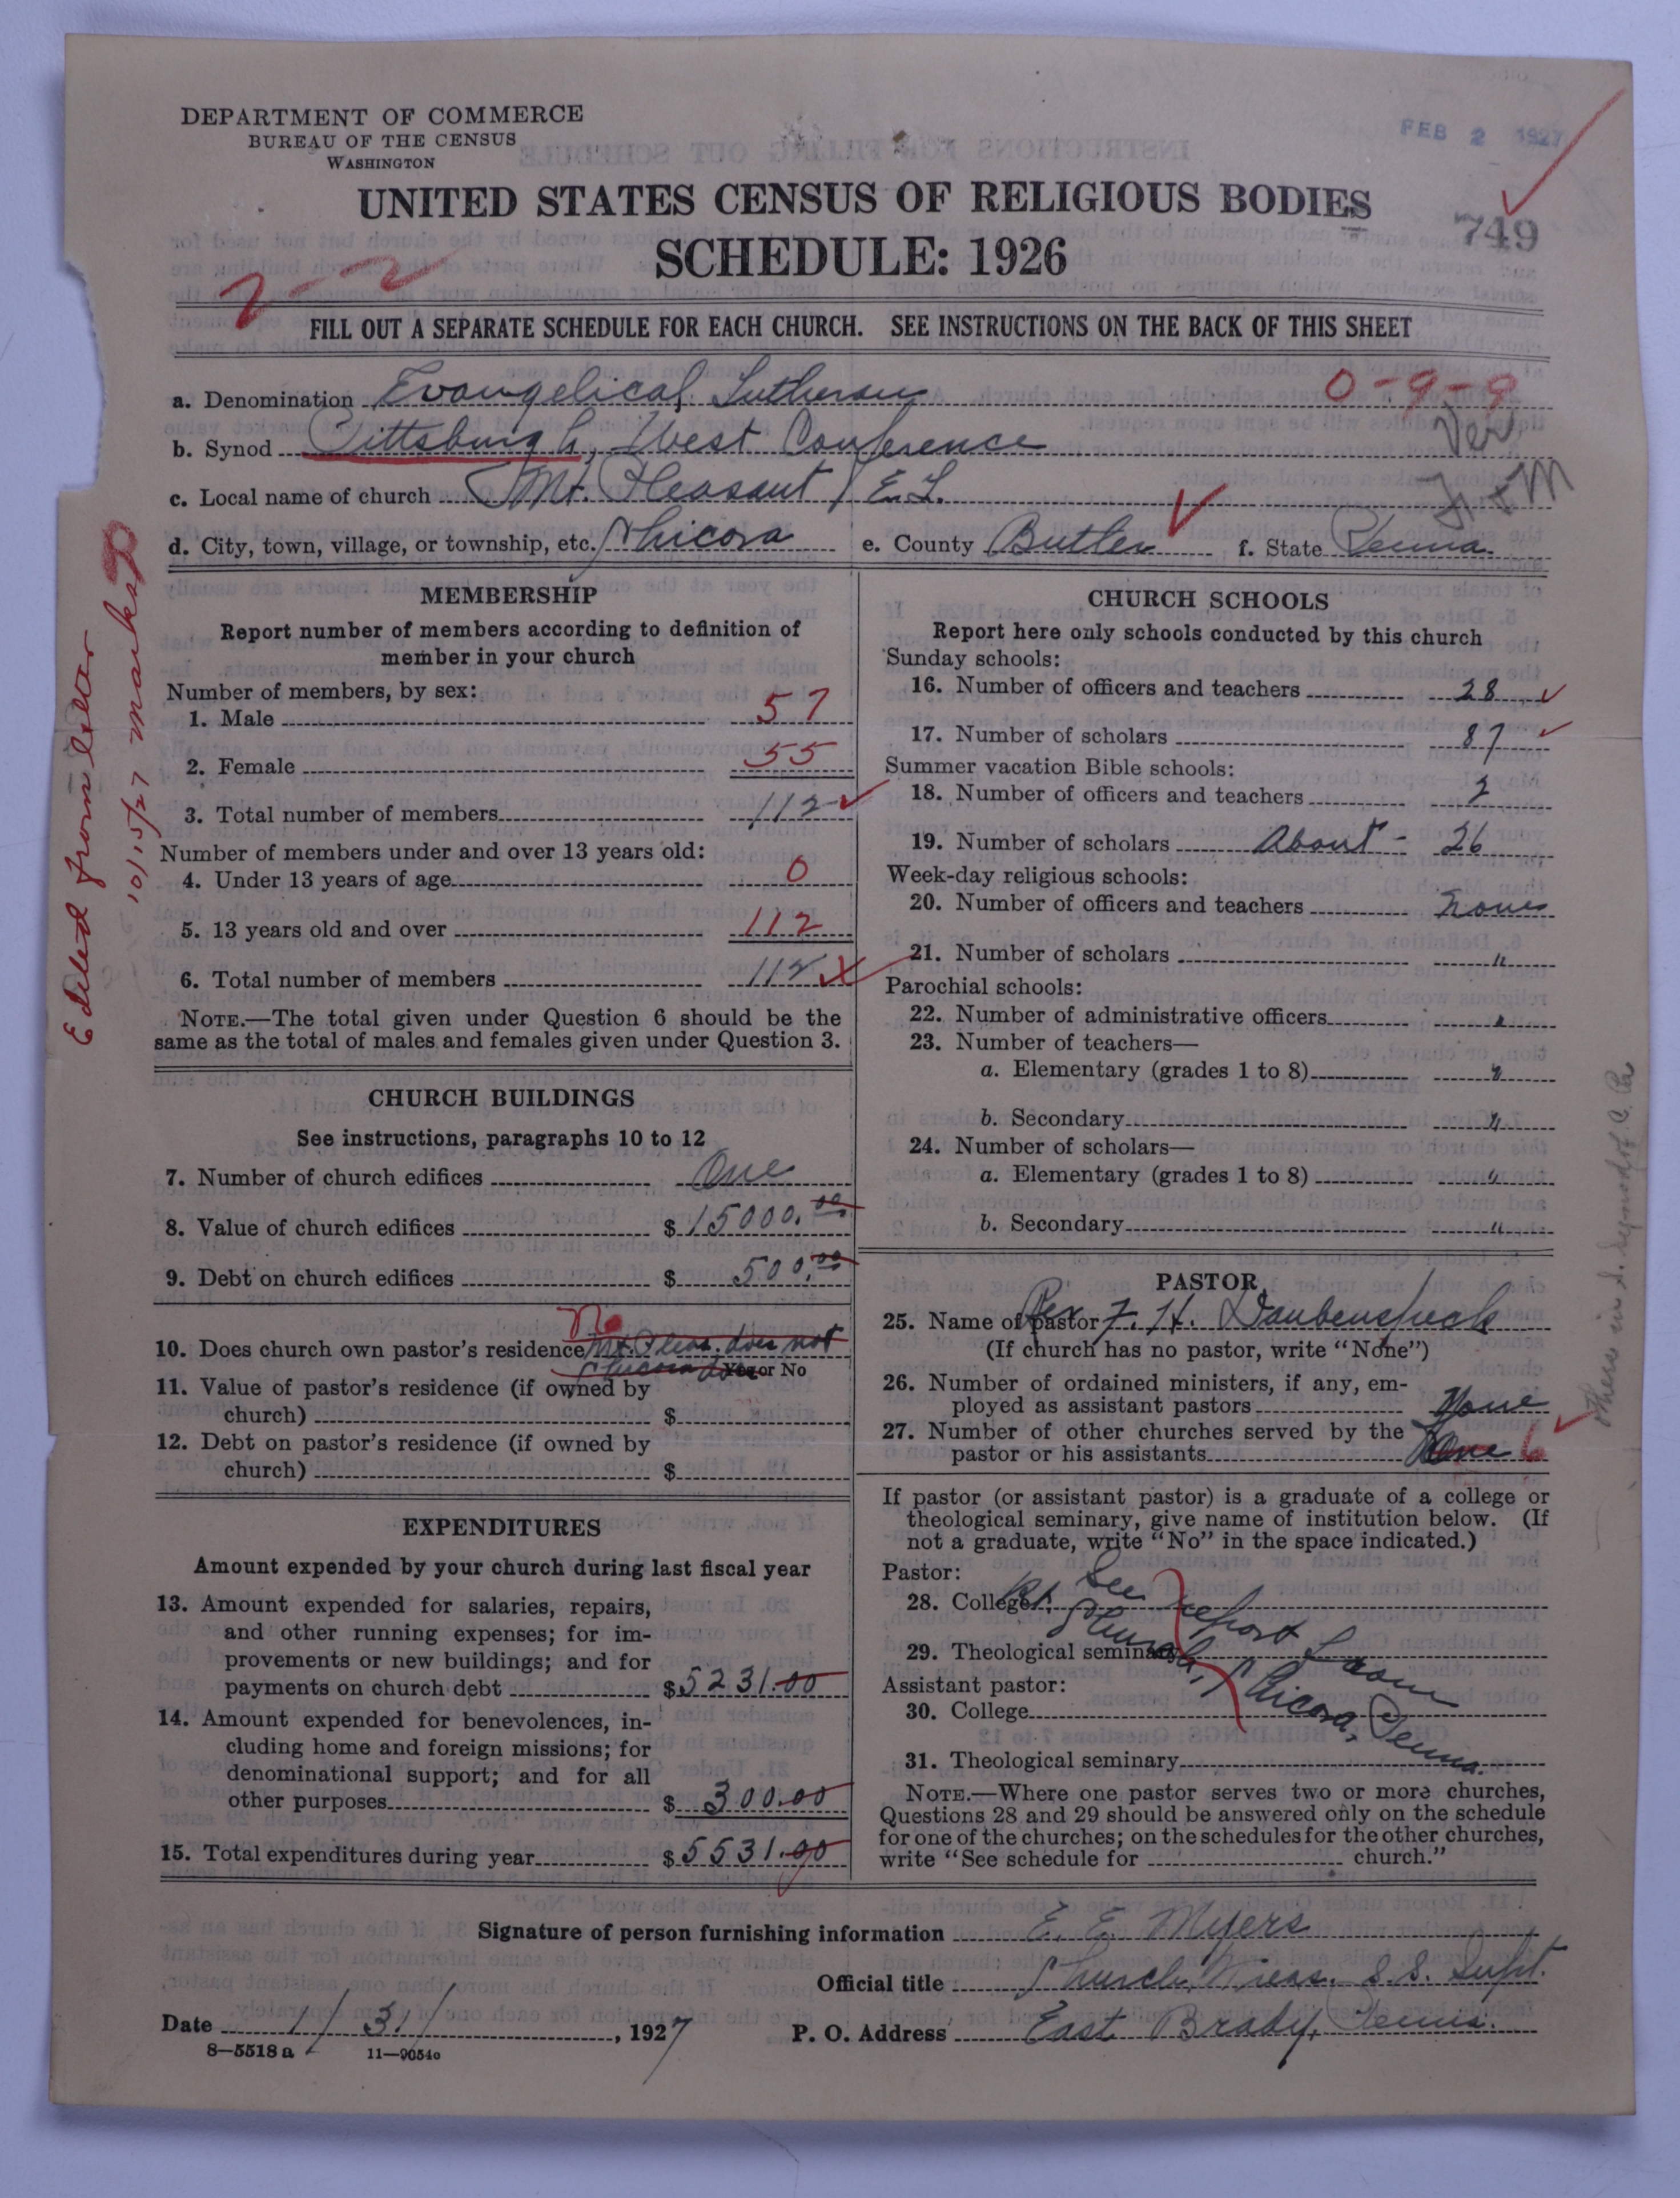 DEPARTMENT OF COMMERCE
BUREAU OF THE CENSUS
WASHINGTON
FEB 2 1927
UNITED STATES CENSUS OF RELIGIOUS BODIES
749
SCHEDULE: 1926
2-2
FILL OUT A SEPARATE SCHEDULE FOR EACH CHURCH. SEE INSTRUCTIONS ON THE BACK OF THIS SHEET
a. Denomination Evangelical Lutheran 0-9-9
b. Synod Pittsburgh, West Conference Ver
c. Local name of church Mt. Pleasant E.L.
d. City, town, village, or township, etc. Chicora e. County Butler f. State Penna.
Edited from letter
10/15/27 marked
MEMBERSHIP
Report number of members according to definition of
member in your church
Number of members, by sex:
1. Male 57
2. Female 55
3. Total number of members 112
Number of members under and over 13 years old:
4. Under 13 years of age 0
5. 13 years old and over 112
6. Total number of members 112
NOTE.—The total given under Question 6 should be the
same as the total of males and females given under Question 3.
CHURCH BUILDINGS
See instructions, paragraphs 10 to 12
7. Number of church edifices One
8. Value of church edifices $15000.00
9. Debt on church edifices $500.00
No
10. Does church own pastor's residence Mt. Pleas. does not
Chicora does Yes or No
11. Value of pastor's residence (if owned by
church) $
12. Debt on pastor's residence (if owned by
church) $
EXPENDITURES
Amount expended by your church during last fiscal year
13. Amount expended for salaries, repairs,
and other running expenses; for im-
provements or new buildings; and for
payments on church debt $5231.00
14. Amount expended for benevolences, in-
cluding home and foreign missions; for
denominational support; and for all
other purposes $300.00
15. Total expenditures during year $5531.00
CHURCH SCHOOLS
Report here only schools conducted by this church
Sunday schools:
16. Number of officers and teachers 28
17. Number of scholars 87
Summer vacation Bible schools:
18. Number of officers and teachers 2
19. Number of scholars About - 26
Week-day religious schools:
20. Number of officers and teachers None
21. Number of scholars "
Parochial schools:
22. Number of administrative officers "
23. Number of teachers—
a. Elementary (grades 1 to 8) "
b. Secondary "
24. Number of scholars—
a. Elementary (grades 1 to 8) "
b. Secondary "
PASTOR
25. Name of pastor Rev. F. H. Daubenspeck
(If church has no pastor, write "None")
26. Number of ordained ministers, if any, em-
ployed as assistant pastors None
27. Number of other churches served by the
pastor or his assistants 6
If pastor (or assistant pastor) is a graduate of a college or
theological seminary, give name of institution below. (If
not a graduate, write "No" in the space indicated.)
Pastor:
See report from
28. College
29. Theological seminary
Church, Chicora, Penna.
Assistant pastor:
30. College
31. Theological seminary
NOTE.—Where one pastor serves two or more churches,
Questions 28 and 29 should be answered only on the schedule
for one of the churches; on the schedules for the other churches,
write "See schedule for church."
Signature of person furnishing information E. E. Myers
Official title Church Treas. S.S. Supt.
Date 1/31/, 1927 P. O. Address East Brady, Penna.
8—5518 a 11—9054a